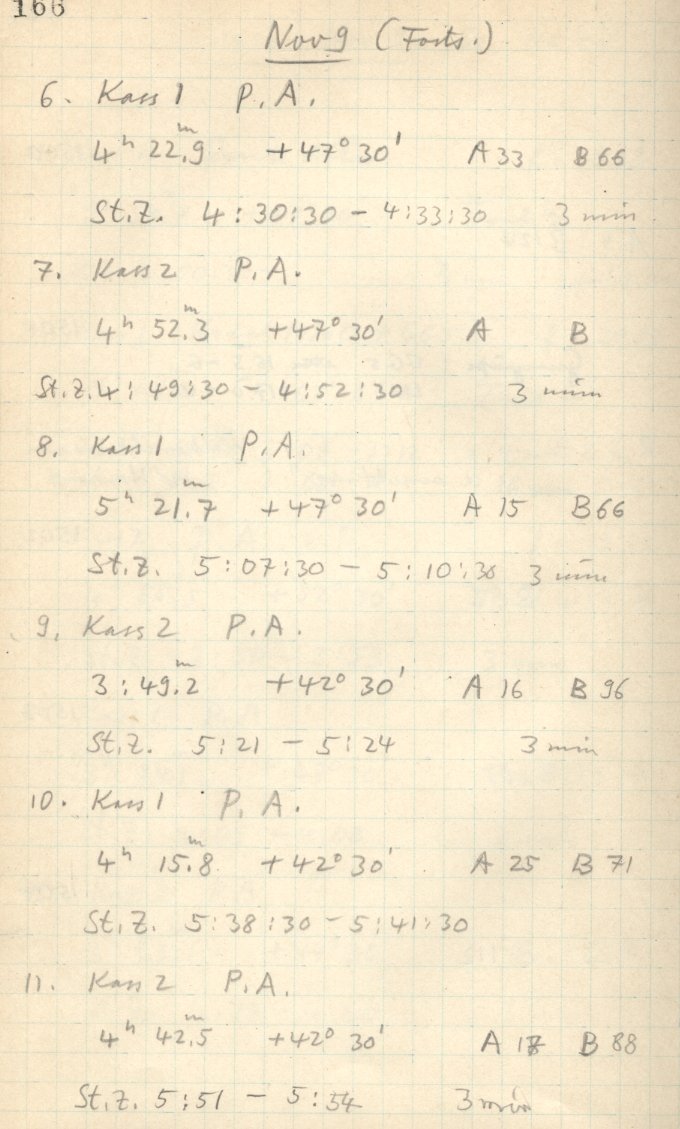 166
Nov 9 (Forts.)
6. Kass 1 P.A.
4h 22.m9 +47° 30' A 33 B 66
St.Z. 4:30:30 – 4:33:30 3 min
7. Kass 2 P.A.
4h 52.m3 +47° 30' A B
St.Z. 4:49:30 – 4:52:30 3 min
8. Kass 1 P.A.
5h 21.m7 +47° 30' A 15 B 66
St.Z. 5:07:30 – 5:10:30 3 min
9. Kass 2 P.A.
3:49.m2 +42° 30' A 16 B 96
St.Z. 5:21 – 5:24 3 min
10. Kass 1 P.A.
4h 15.m8 +42° 30' A 25 B 71
St.Z. 5:38:30 – 5:41:30
11. Kass 2 P.A.
4h 42.m5 +42° 30' A B 88
St.Z. 5:51 – 5:54 3 min